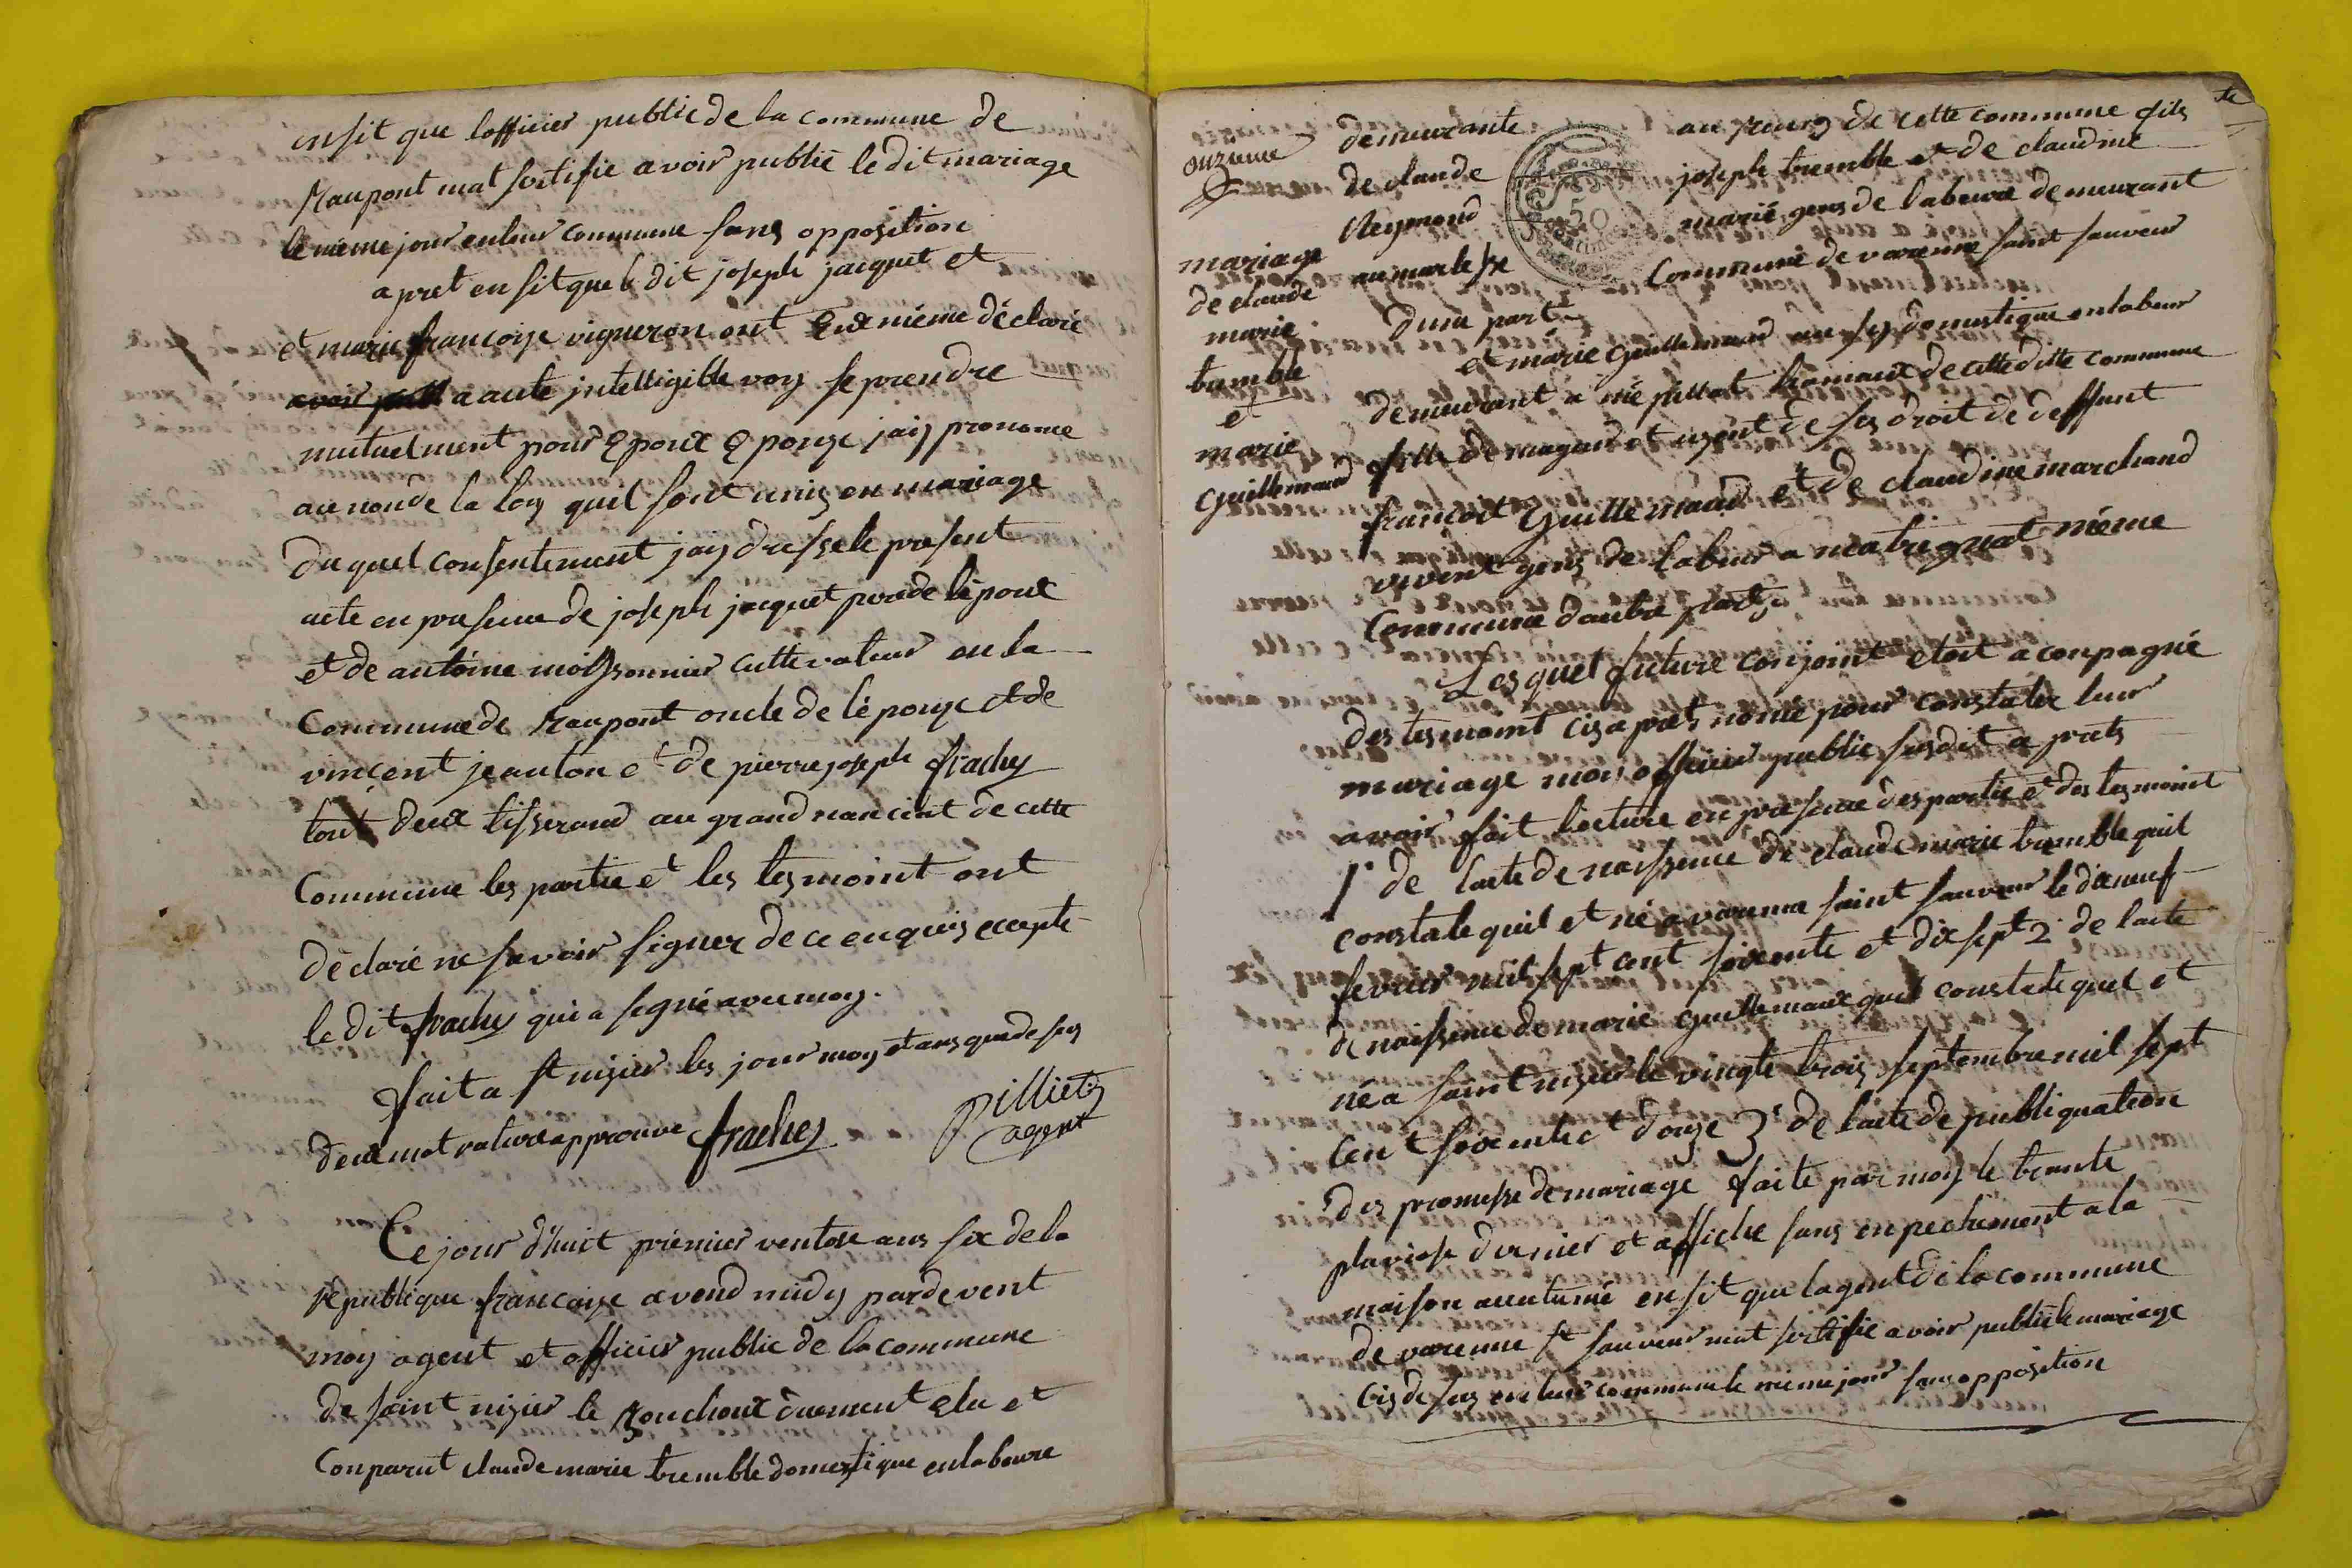 ensit que lofficier public de la commune de
Raupont mat sertifie avoir publié le dit mariage
le meme jour en leur commune sans opposition
apret ensit que le dit joseph jacquet et
et marie francoise vigneron ont Eux même déclaré
avoir a aute intelligible voy se prendre
mutuelment pour Epoux Epouse jais pronome
au non de la loy quel sont unis en mariage
du quel consentement jay dresse le present
acte en presence de joseph jacquet perede lépoux
et de antoine moissonnier cultevateur en la
Commune de Raupont oncle de lépouse et de
vincent jeanton et de pierre joseph frachey
tout deux tisserand au grand nancient de cette
Commune les partie et les tesmoint ont
déclaré ne savoir signer de ce enquis excepte
le dit frachey qui a segné avec moy.
fait a st nizier les jour moy et ans que desus
deux mot rature approuve frachey
Pilliet
agent
Ce jour d'huit prémier ventose ans six de la
république francaise avend midy pardevent
moy agent et officier public de la commune
de saint nizier le Bouchoux duement elu et
Conparut claude marie tremble domestique en laboure
onzieme
mariage
de claude
marie
tramble
et
marie
Guillemaud
demeurante au de cette commune fils
de claude joseph tremble et de claudine
Reymond marié gens de laboure demeurant
au Commune de varenne saint sauveur
dune part
et marie Guillemaud au sy domestique en labour
demeurant a de cette ditte commune
fille de mageur et usent de ses droit de deffunt
francoit Guillemaud et de claudine marchand
vivent gens de labeur a même
Commune dautre part
Lesquel future conjoint etoit aconpagné
des tesmoint cis apret nomé pour constater leur
mariage moy officier public susdit a prets
avoir fait lecture en presence des partie et des tesmoint
1r de lacte de naissence de claude marie tramble quil
constate quil et né a varenne saint sauveur le dixneuf
fevrier mil sept cent soixente et dix sept 2 de lacte
de naissence de marie Guillemaux quil constate quel et
né a saint nizier le vingte trois septembre mil sept
Cent soixente et douze 3e de lacte de publiquation
des promesse de mariage faite par moy le trante
pluviose dernier et affiche sans enpechement a la
maison acoutumé ensit que lagent de la commune
de varenne st sauveur mat sertifie avoir publié le mariage
cis desus en leur commune le meme jour sans opposition